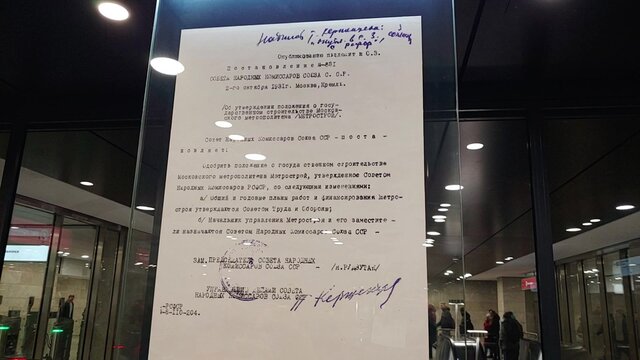 Опубликованию подлежит в С.З.
Постановление №-831
СОВЕТА НАРОДНЫХ КОМИССАРОВ СОЮЗА С.С.Р.
2-го октября 1931г. Москва, Кремль.
/Об утверждении положения о госу-
дарственном строительстве Москов-
ского метрополитена /МЕТРОСТРОЙ/.
Совет Народных Комиссаров Союза ССР - поста -
новляет:
Одобрить положение о государственном строительстве
Московского метрополитена Метрострой, утвержденное Советом
Народных Комиссаров РСФСР, со следующими изменениями:
а/ Общий и годовые планы работ и финансирования Метро-
строя утверждаются Советом Труда и Обороны;
б/ Начальник управления Метростроя и его заместите -
ли назначаются Советом Народных Комиссаров Союза ССР -
ЗАМ. ПРЕДСЕДАТЕЛЯ СОВЕТА НАРОДНЫХ
КОМИССАРОВ СОЮЗА ССР - /Я.РУДЗУТАК/
УПРАВЛЯЮЩИЙ ДЕЛАМИ СОВЕТА
НАРОДНЫХ КОМИССАРОВ СОЮЗА ССР